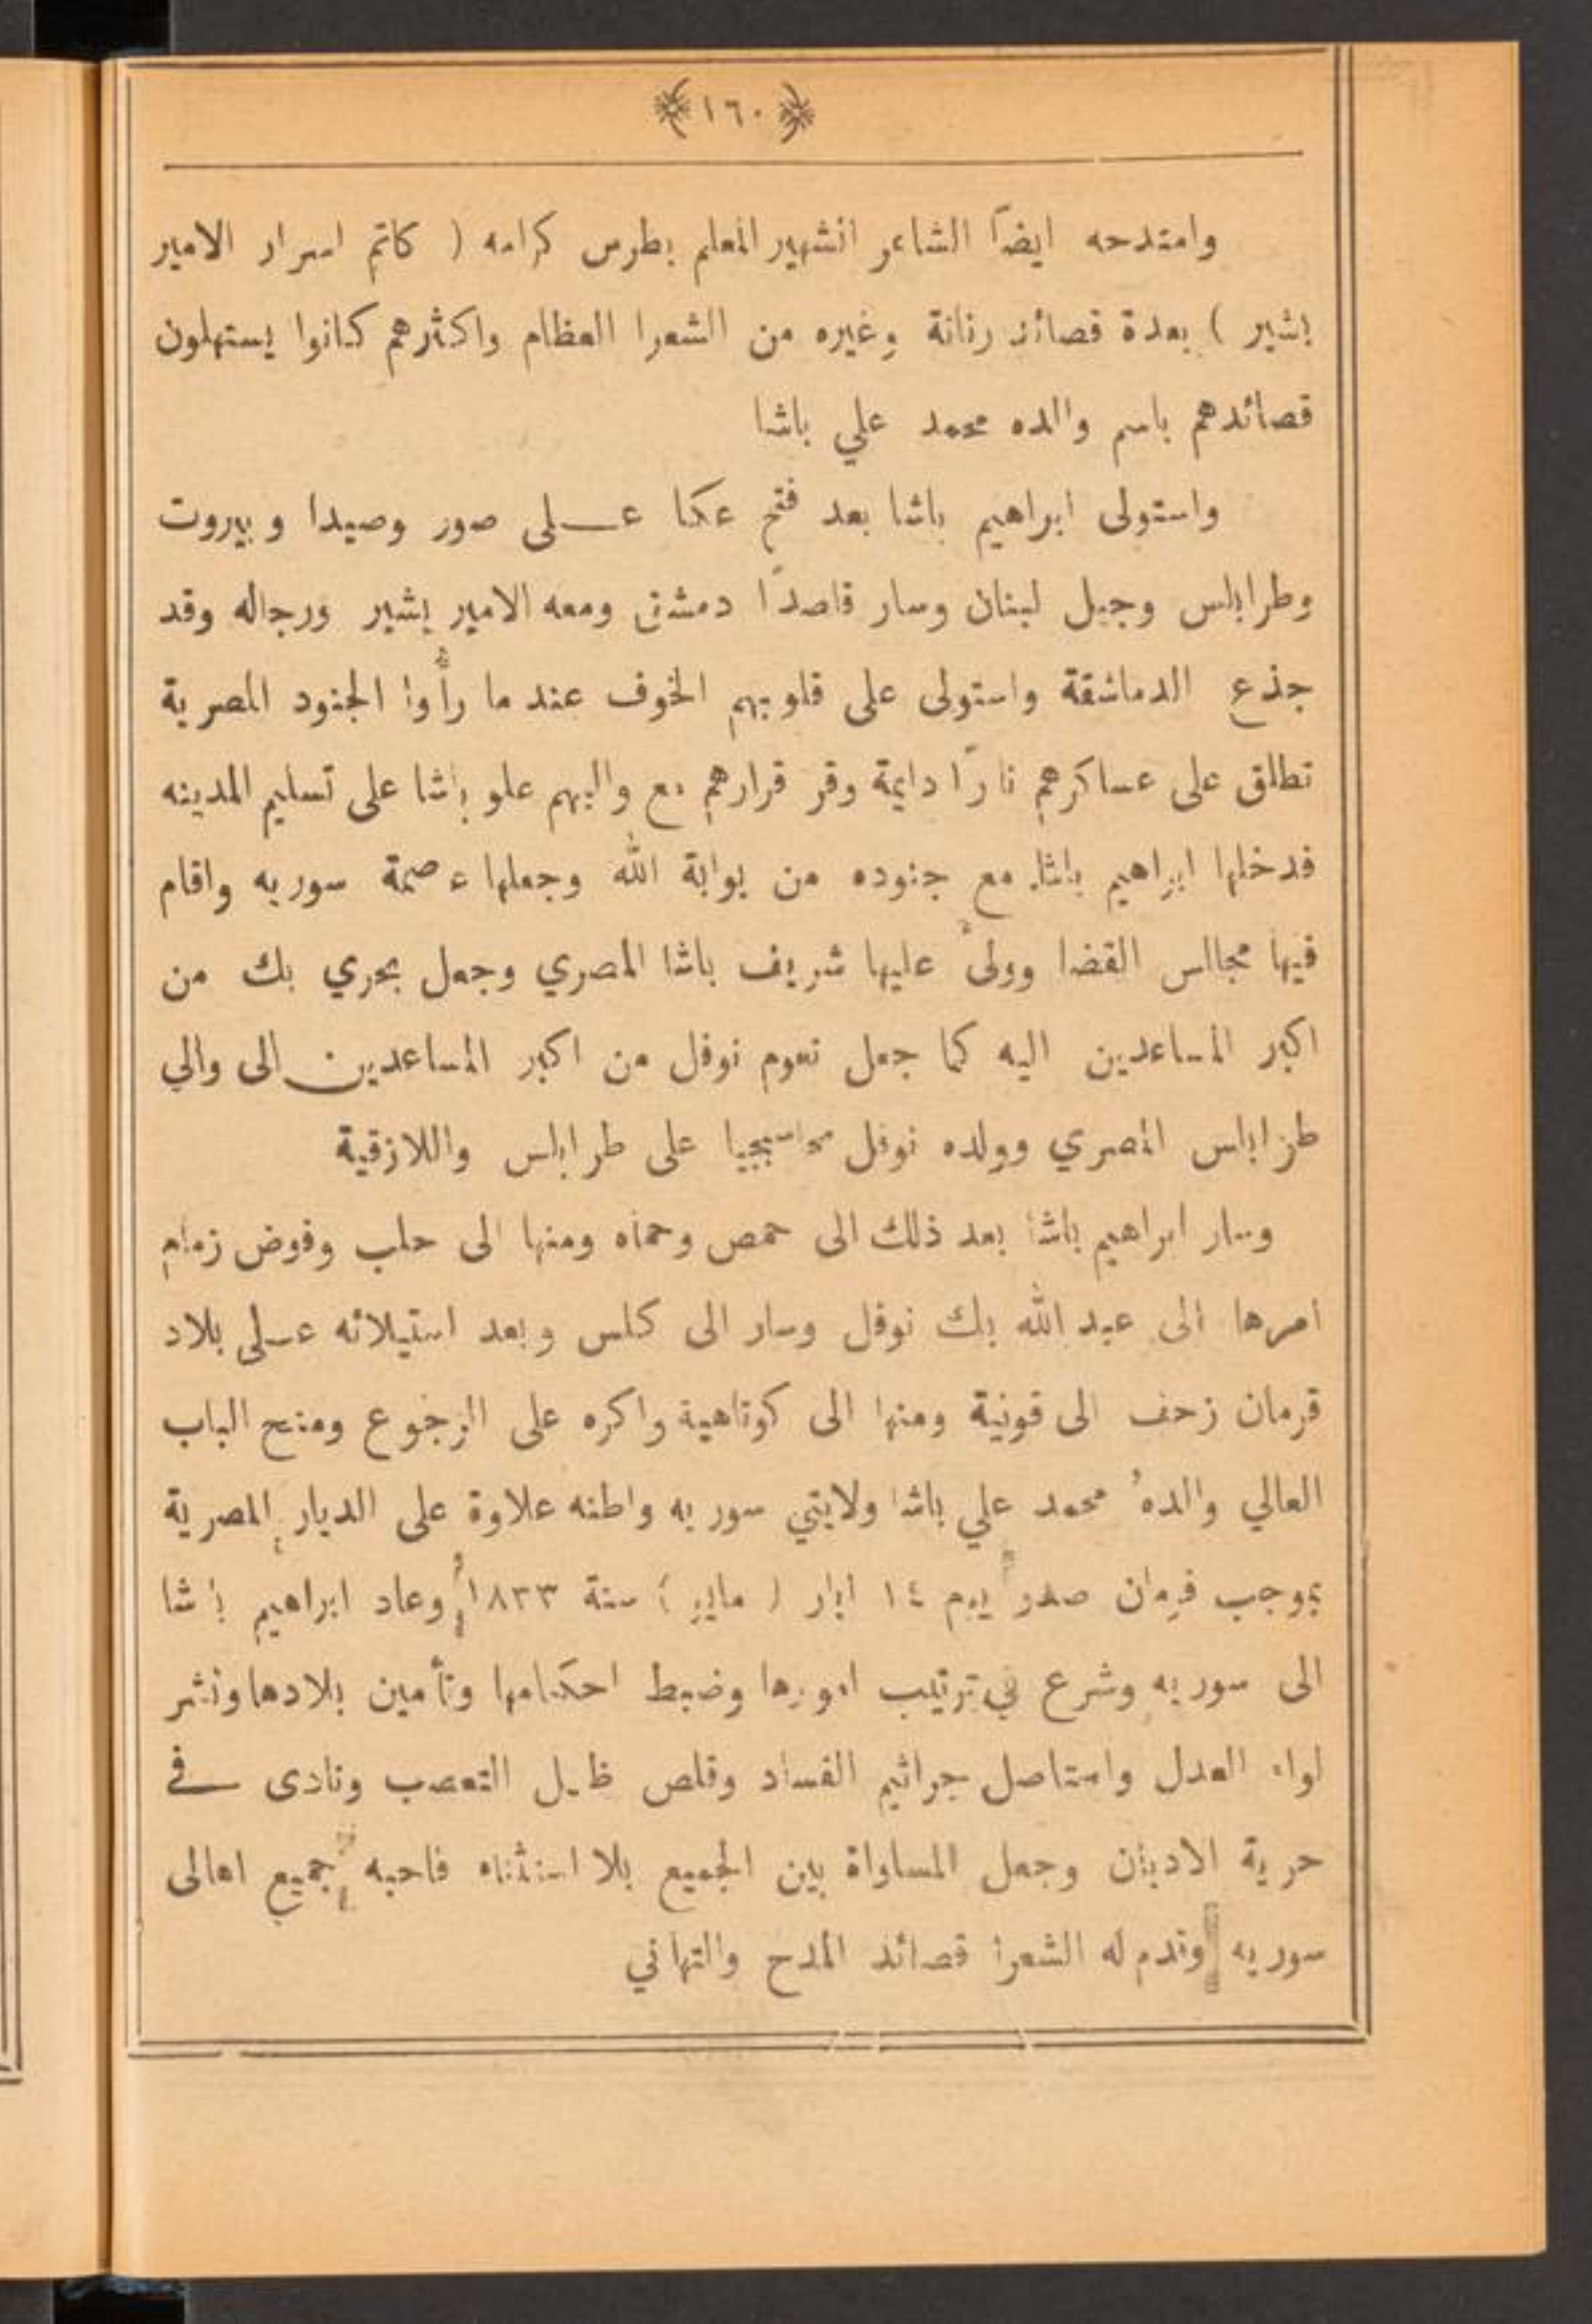 ١٦٠
وامتدحه ايضاً الشاعر الشهير المعلم بطرس كرامه ( كاتم اسرار الامير
بشير ) بعدة قصائد رنانة وغيره من الشعرا العظام واكثرهم كانوا يستهلون
قصائدهم باسم والده محمد علي باشا
واستولى ابراهيم باشا بعد فتح عكا عـــلى صور وصيدا وبيروت
وطرابلس وجبل لبنان وسار قاصدًا دمشق ومعه الامير بشير ورجاله وقد
جذع الدماشقة واستولى على قلوبهم الخوف عند ما رأَوا الجنود المصرية
تطلق على عساكرهم نارًا دايمة وقر قرارهم مع واليهم علو باشا على تسليم المدينه
فدخلها ابراهيم باشا مع جنوده من بوابة الله وجعلها عصمة سوريه واقام
فيها مجالس القضا وولىَّ عليها شريف باشا المصري وجعل بحري بك من
اكبر المساعدين اليه كما جعل نعوم نوفل من اكبر المساعدين الى والي
طرابلس المصري وولده نوفل محاسبجيا على طرابلس واللازقية
وسار ابراهيم باشا بعد ذلك الى حمص وحماه ومنها الى حلب وفوض زمام
امرها الى عبد الله بك نوفل وسار الى كلس وبعد استيلائه عـلى بلاد
قرمان زحف الى قونية ومنها الى كوتاهية واكره على الرجوع ومنح الباب
العالي والدهُ محمد علي باشا ولايتي سوريه واطنه علاوة على الديار المصرية
بموجب فرمان صدر يوم ١٤ ايار ( مايو ) سنة ١٨٣٣ وعاد ابراهيم باشا
الى سوريه وشرع في ترتيب امورها وضبط احكامها وتأمين بلادها ونشر
لواء العدل واستاصل جراثيم الفساد وقلص ظـل التعصب ونادى ـــفي
حرية الاديان وجعل المساواة بين الجميع بلا استثناء فاحبه جميع اهالى
سوريه وقدم له الشعرا قصائد المدح والتهاني